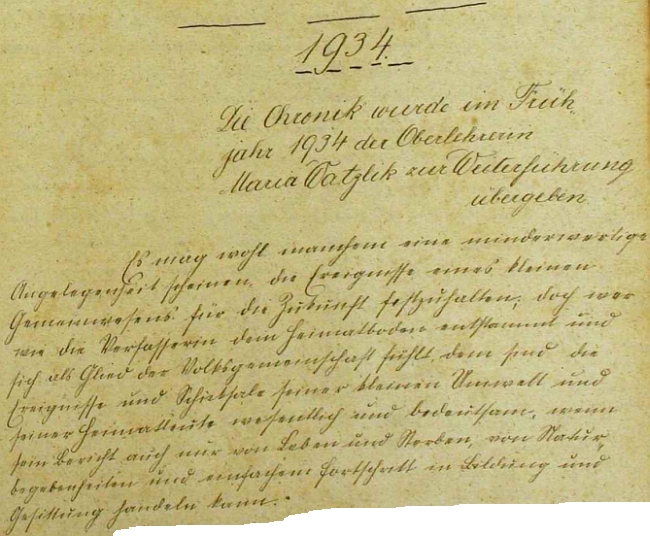 1934.
Die Chronik wurde im Früh-
jahr 1934 der Oberlehrerin
Maria Watzlik zur Weiterführung
übergeben
Es mag wohl manchem eine minderwertige
Angelegenheit scheinen, die Ereignisse eines kleinen
Gemeinwesens für die Zukunft festzuhalten; doch wer
wie die Verfasserin dem Heimatboden entstammt und
sich als Glied der Volksgemeinschaft fühlt, dem sind die
Ereignisse und Schicksale seiner kleinen Umwelt und
seiner Heimatleute wesentlich und bedeutsam, wenn
sein Bericht auch nur von Leben und Sterben, von Natur-
begebenheiten und einfachem Fortschritt in Bildung und
Gesittung handeln kann.-